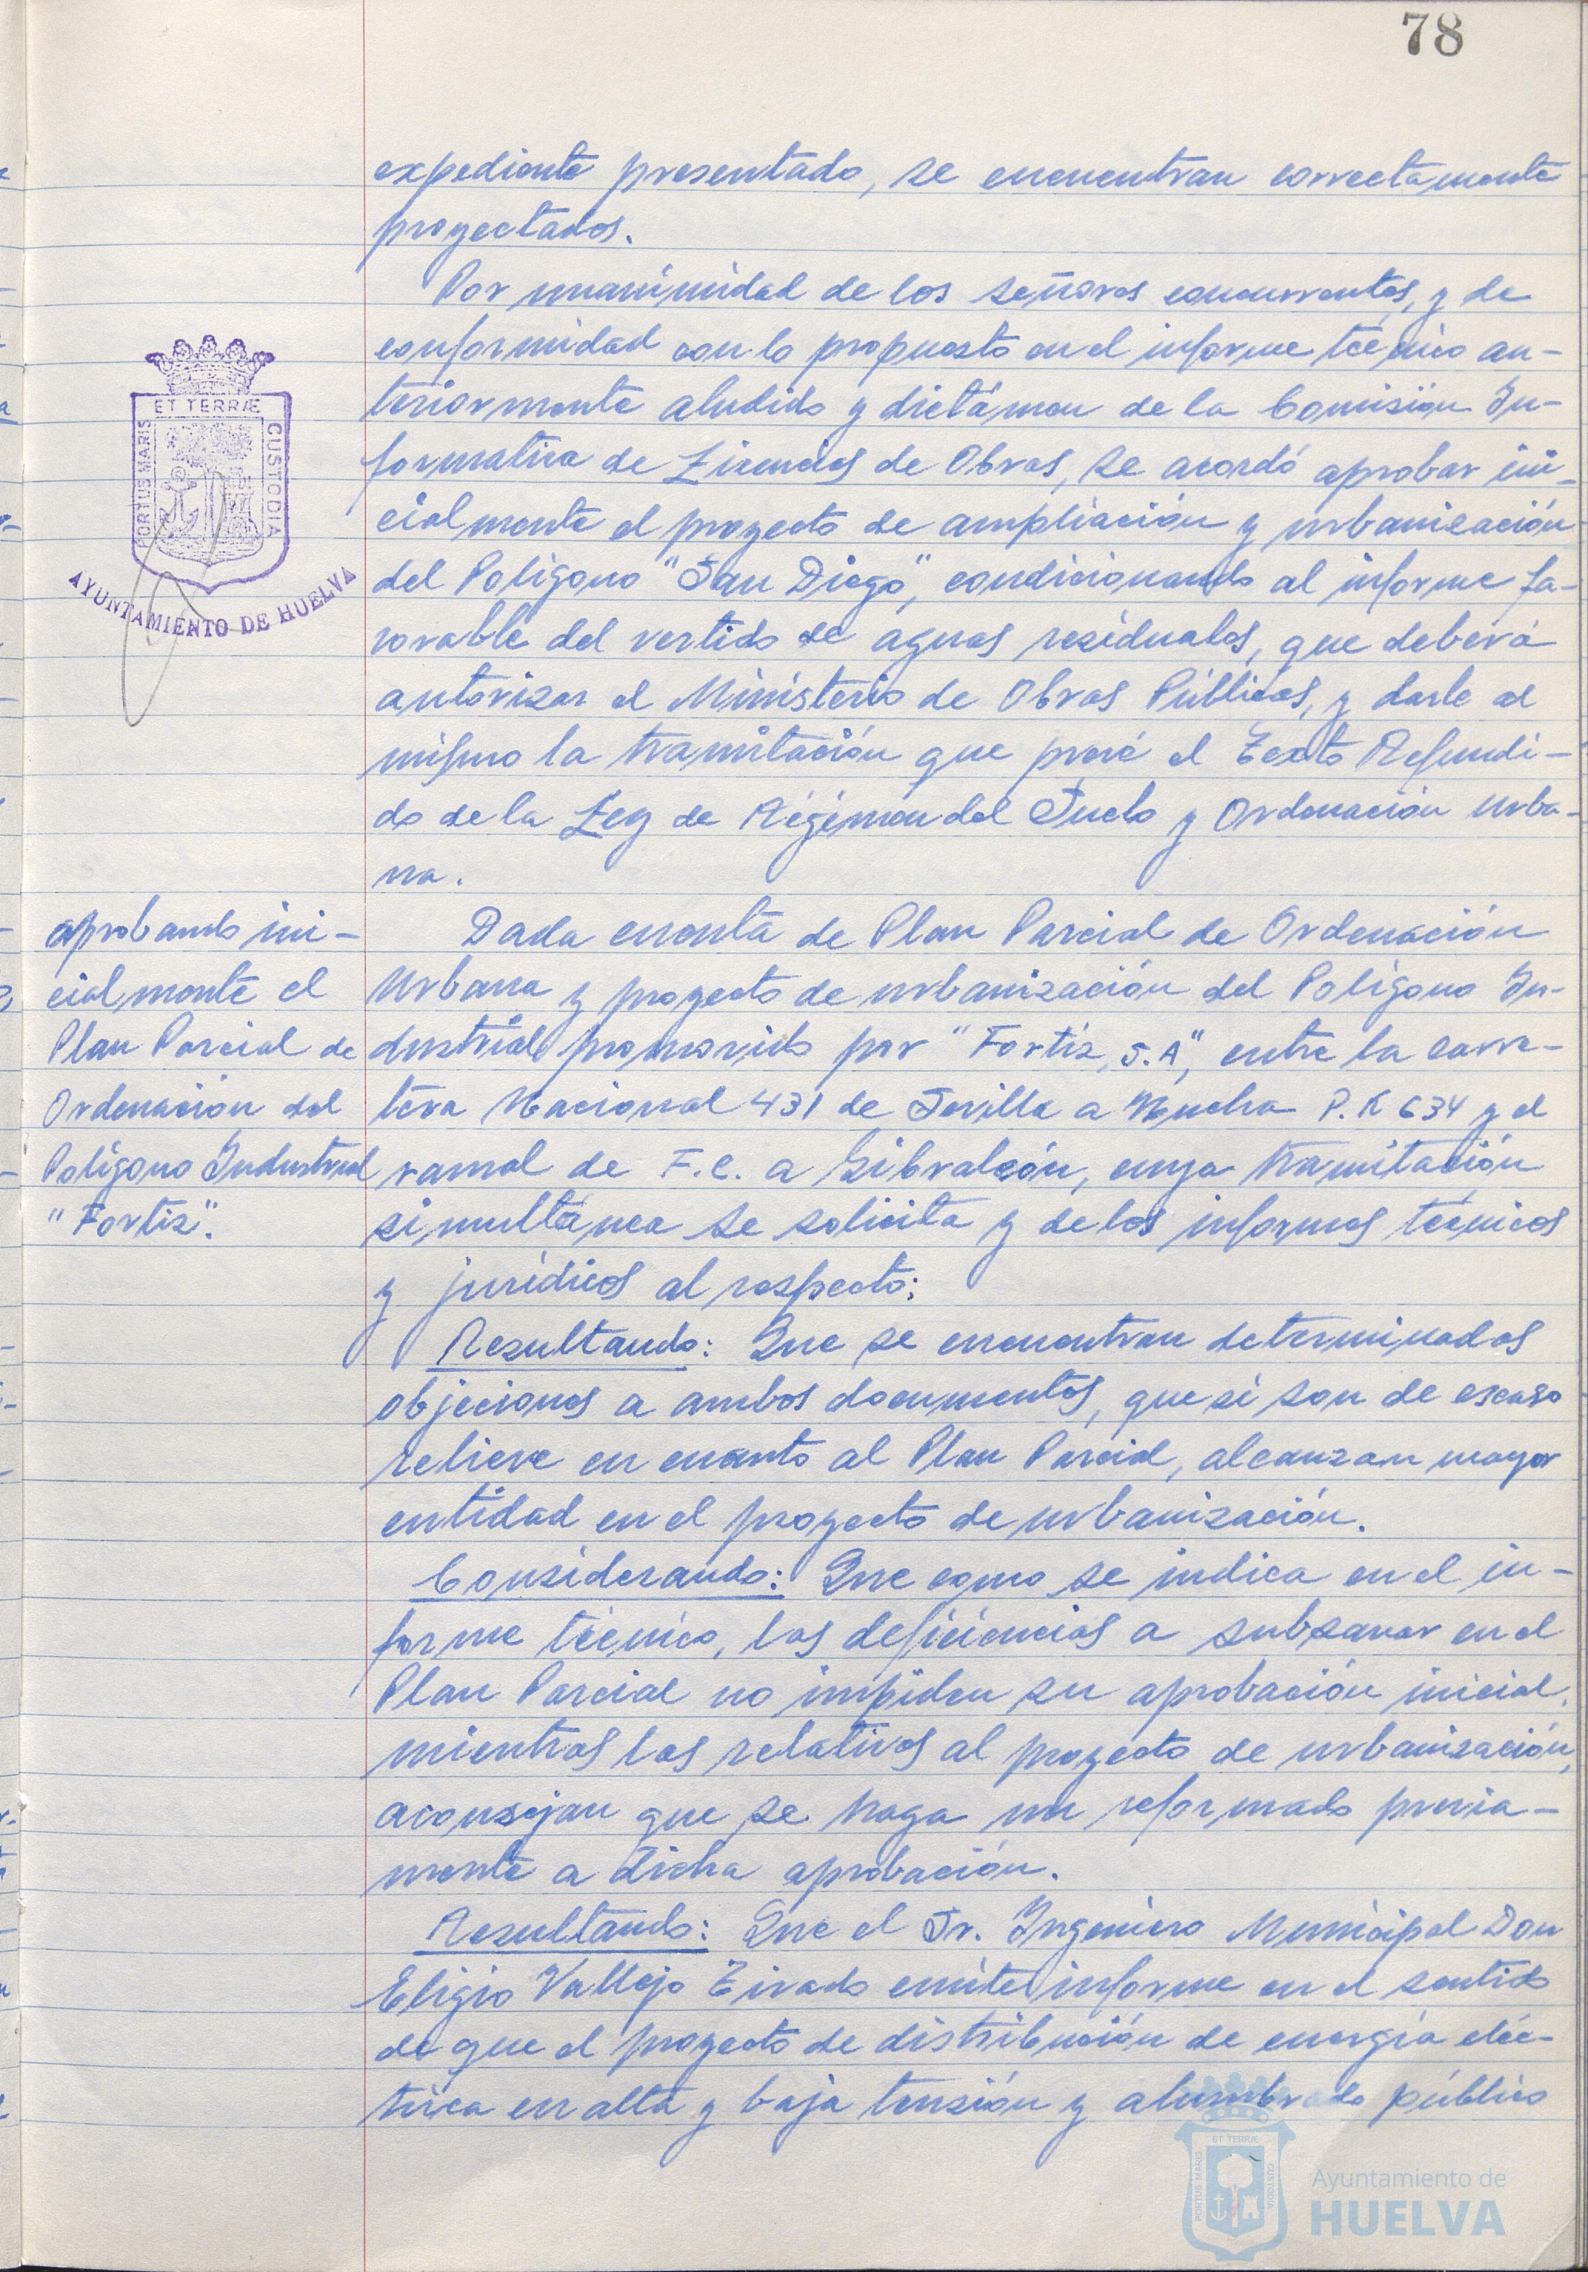 78
expediente presentado, se encuentran correctamente
proyectados.
Por unanimidad de los señores concurrentes, y de
conformidad con lo propuesto en el informe técnico an-
teriormente aludido y dictámen de la Comisión In-
formativa de Licencias de Obras, se acordó aprobar ini-
cialmente el proyecto de ampliación y urbanización
del Polígono "San Diego", condicionando al informe fa-
vorable del vertido de aguas residuales, que deberá
autorizar el Ministerio de Obras Públicas, y darle al
mismo la tramitación que prevé el Texto Refundi-
do de la Ley de Régimen del Suelo y Ordenación Urba-
na.
ET TERRÆ
PORTUS MARIS
CUSTODIA
AYUNTAMIENTO DE HUELVA
aprobando ini-
cialmente el
Plan Parcial de
Ordenación del
Polígono Industrial
"Fortiz".
Dada cuenta de Plan Parcial de Ordenación
Urbana y proyecto de urbanización del Polígono In-
dustrial promovido por "Fortiz, S.A", entre la carre-
tera Nacional 431 de Sevilla a Huelva P.K 634 y el
ramal de F.C. a Gibraleón, cuya tramitación
simultánea se solicita y de los informes técnicos
y jurídicos al respecto;
Resultando: Que se encuentran determinadas
objeciones a ambos documentos, que si son de escaso
relieve en cuanto al Plan Parcial, alcanzan mayor
entidad en el proyecto de urbanización.
Considerando: Que como se indica en el in-
forme técnico, las deficiencias a subsanar en el
Plan Parcial no impiden su aprobación inicial,
mientras las relativas al proyecto de urbanización,
aconsejan que se haga un reformado previa-
mente a dicha aprobación.
Resultando: Que el Sr. Ingeniero Municipal Don
Eligio Vallejo Tirado emite informe en el sentido
de que el proyecto de distribución de energía eléc-
trica en alta y baja tensión y alumbrado público
ET TERRÆ
PORTUS MARIS
CUSTODIA
Ayuntamiento de
HUELVA